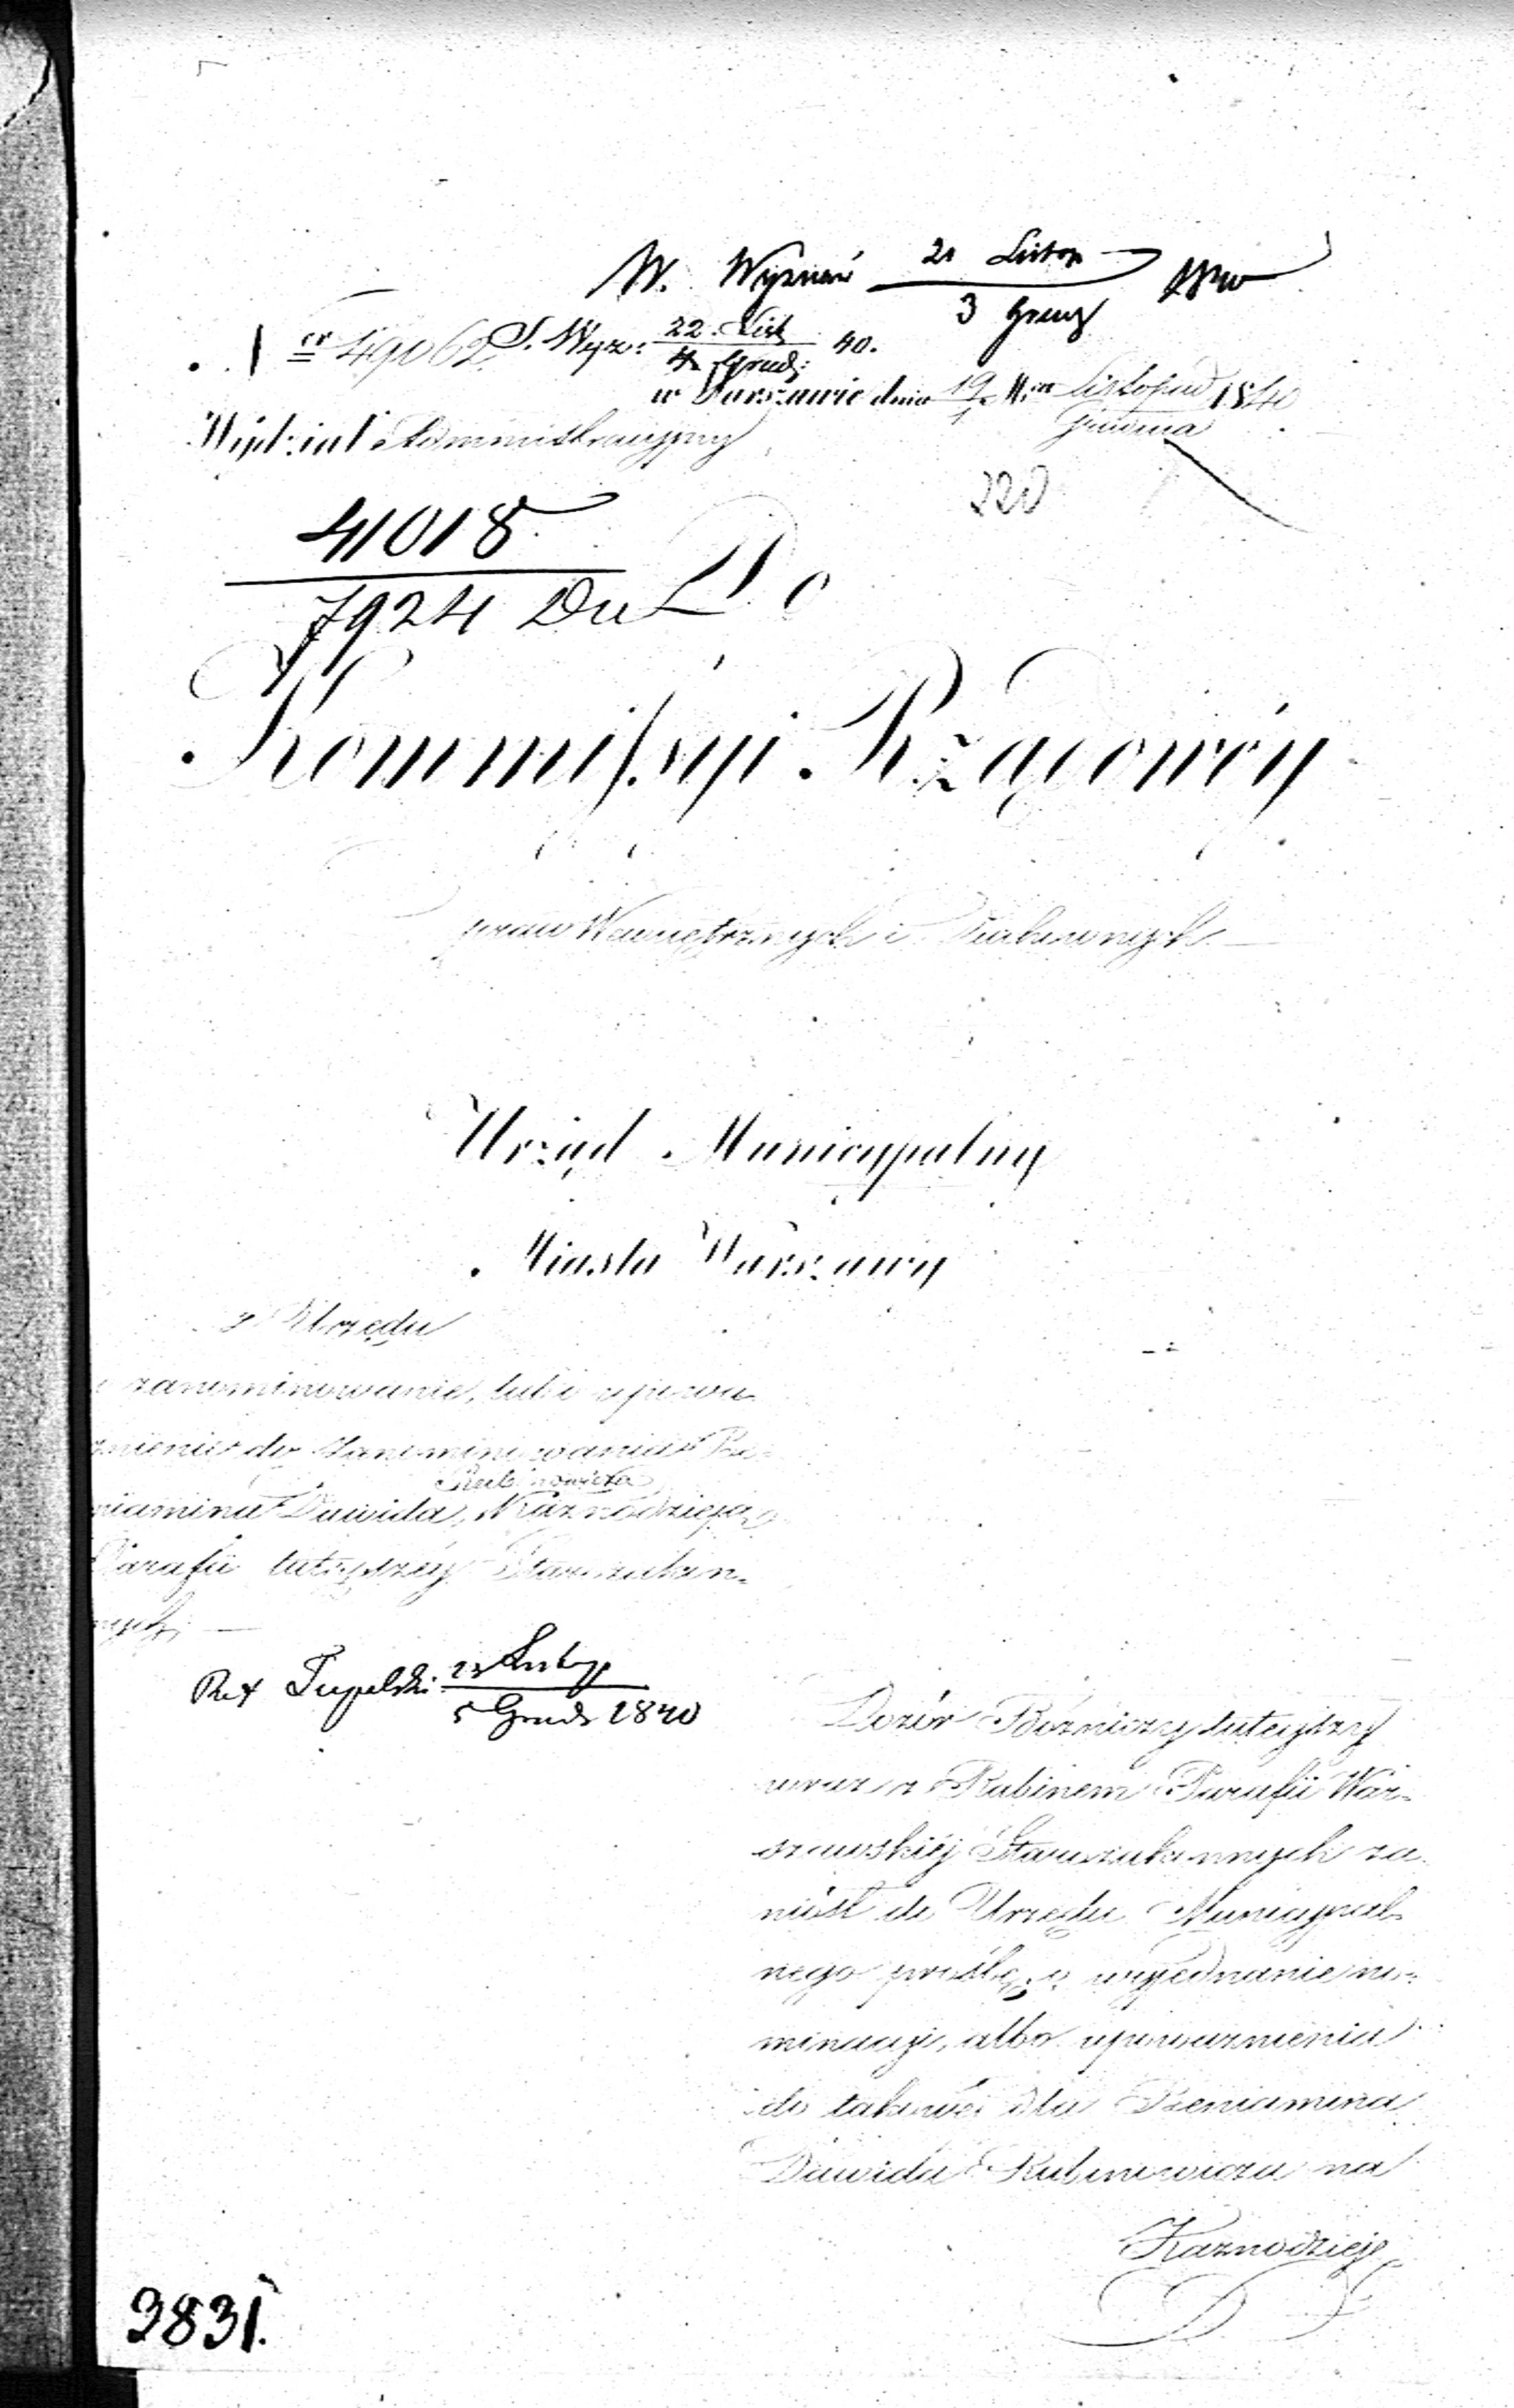 W. Wyznań 21 Listop / 3 Grud 1840
Nr 49062 S. Wyzn: 22. List / 4 Grud: 40.
w Warszawie dnia 19 / 1 Mca Listopad / Grudnia 1840
Wydział Administracyjny
220
41018
7924 Du
Do
Kommissyi Rządowéy
Spraw Wewnętrznych i Duchownych
Urząd Municypalny
Miasta Warszawy
z Urzędu
o zanominowanie, lub o upowa-
żnienie do zanominowania Be-
Rubinowicza
niamina Dawida, Kaznodzieją
Parafii tuteyszéy Starozakon-
nych;
Ref Tupalski 23 Listop / 5 Grud 1840
Dozór Bóżniczy tuteyszy
wraz z Rabinem Parafii War-
szawskiéj Starozakonnych za-
niósł do Urzędu Municypal-
nego prośbę o wyjednanie no-
minacyi, albo upoważnienia
do takowéj dla Beniamina
Dawida Rubinowicza na
Kaznodzieję
3831.